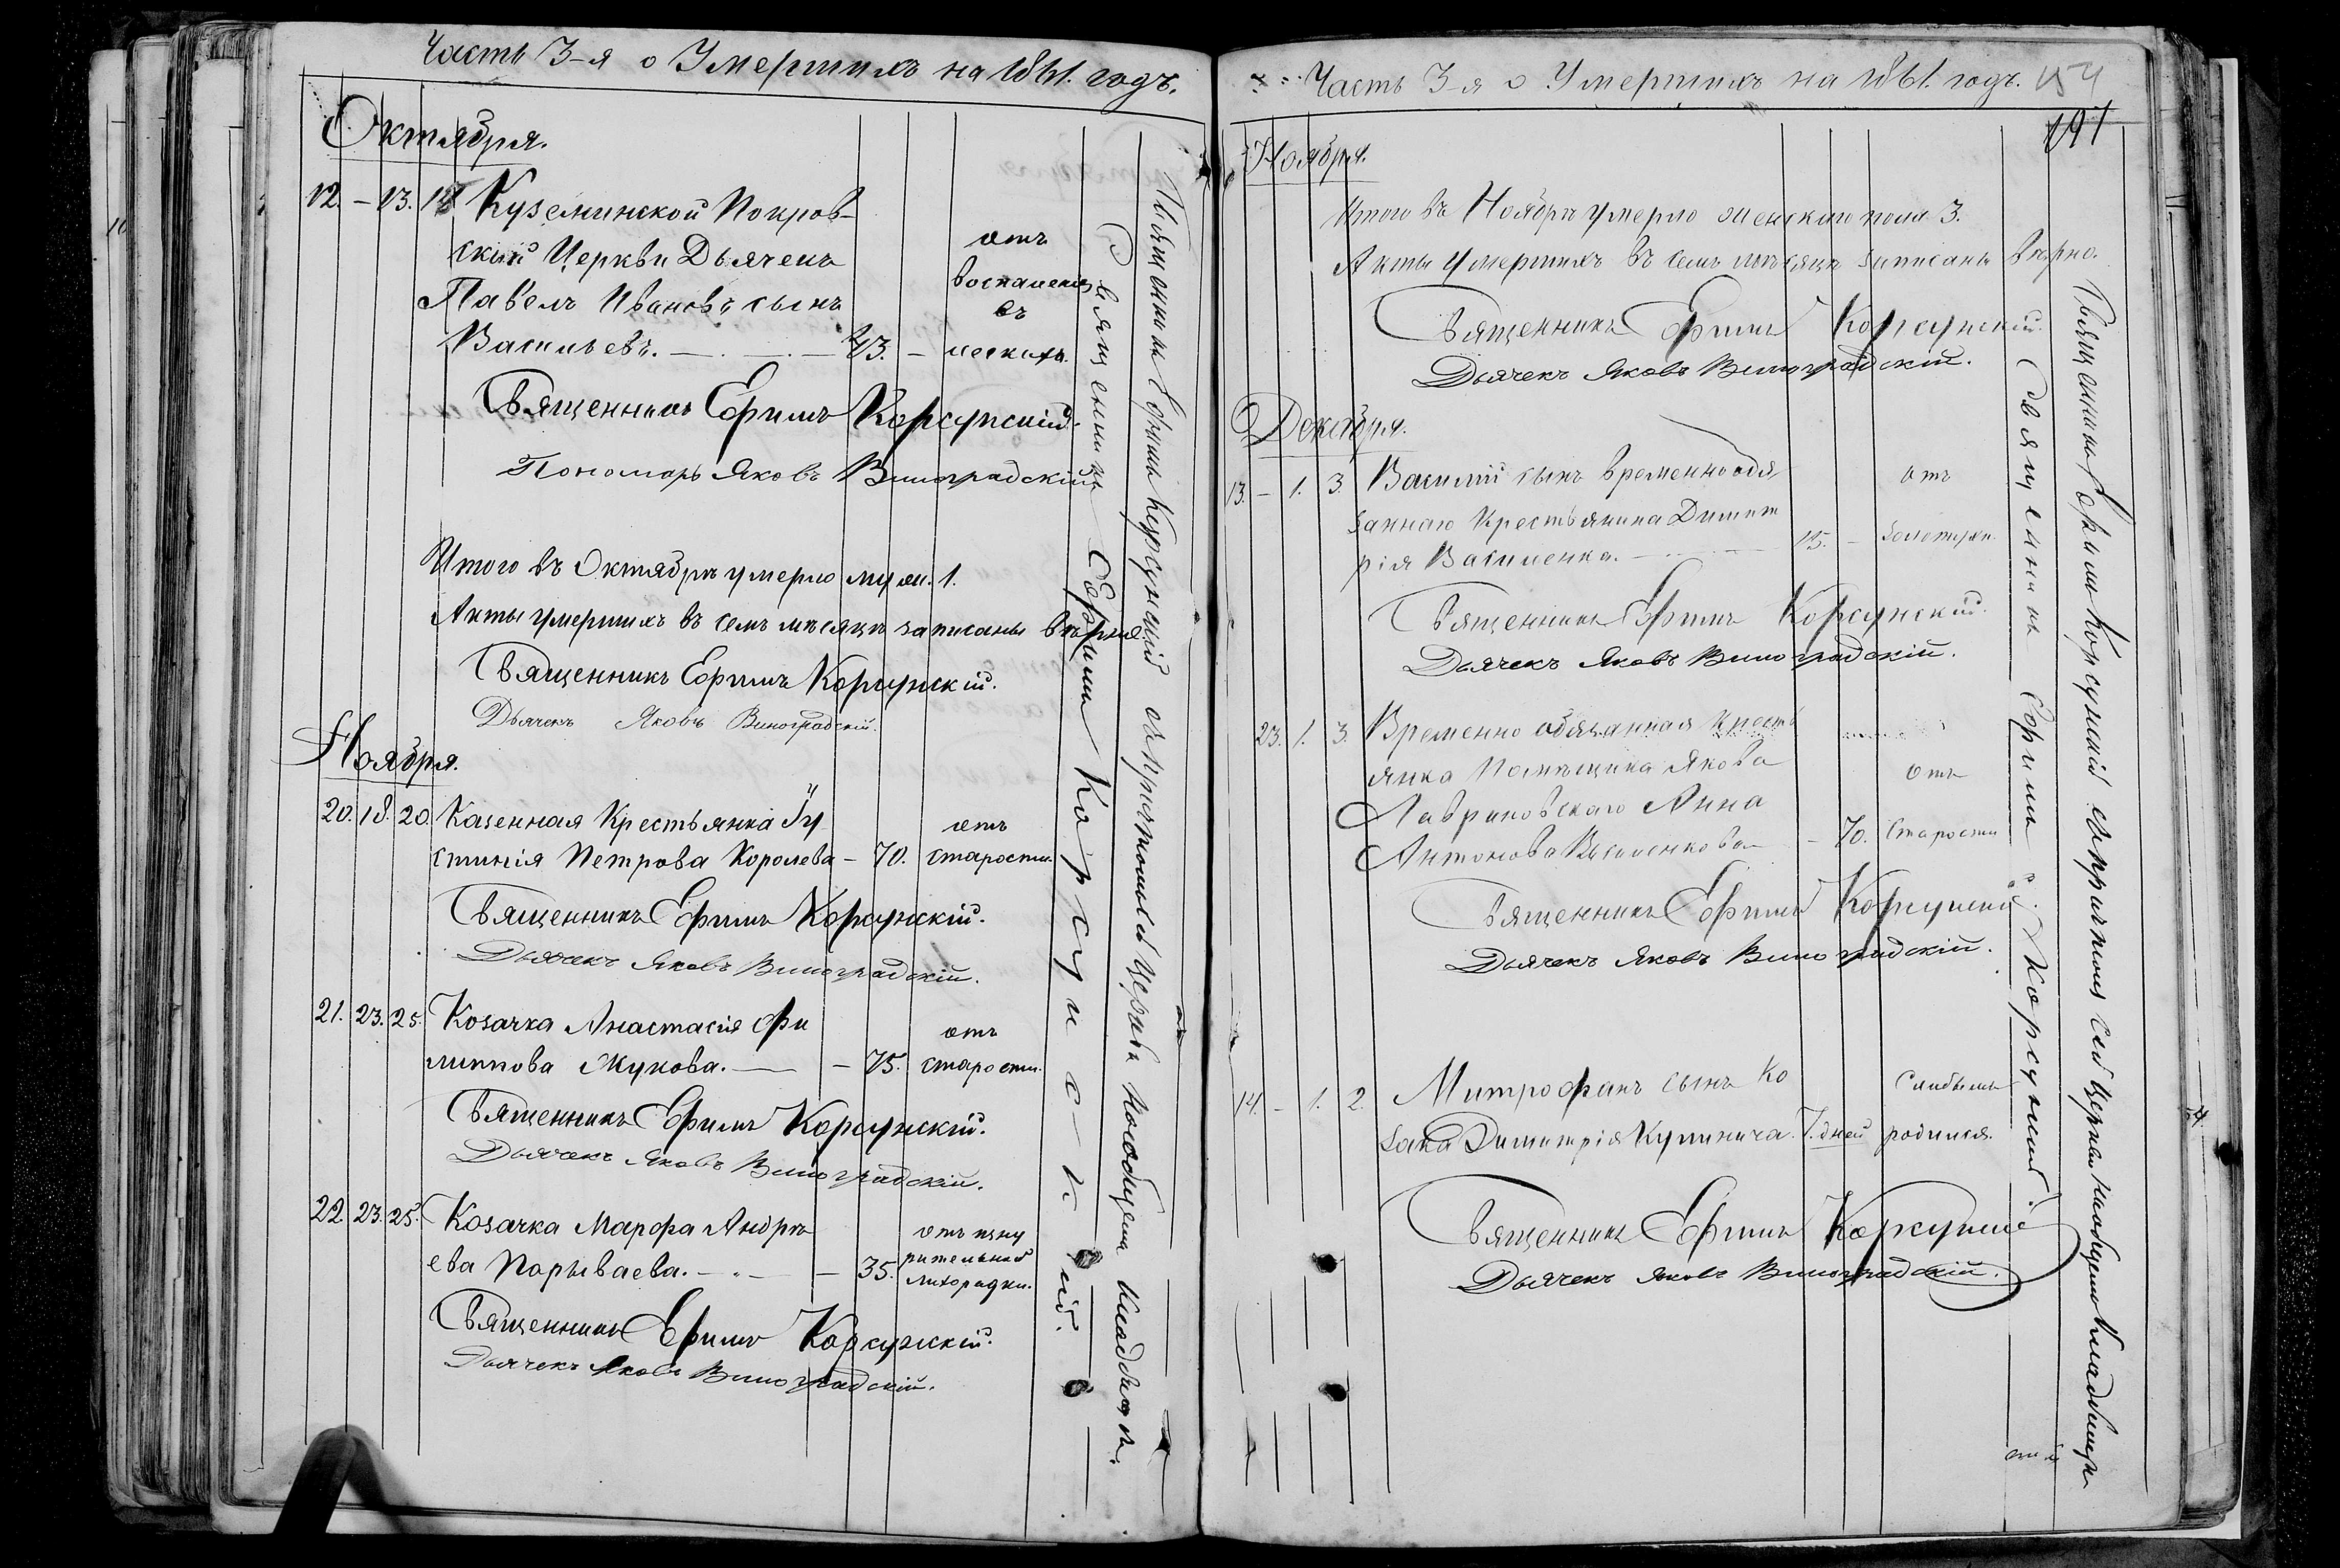 Часть 3-я о Умершихъ на 1861. годъ.
Октября.
12. – 13. 15 Куземинской Покров-
ской Церкви Дьячекъ
Павелъ Ивановъ сынъ
Васильевъ. — 43. –
отъ
воспаленія
въ
легкихъ.
Священникъ Ефимъ Корсунскій.
Пономарь Яковъ Виноградскій
Итого въ Октябрѣ умерло муж. 1.
Акты умершихъ въ семъ мѣсяцѣ записаны вѣрно
Священникъ Ефимъ Корсунскій.
Дьячекъ Яковъ Виноградскій.
Ноября.
20. 18. 20. Казенная Крестьянка Іу
стинія Петрова Королева – 70.
отъ
старости.
Священникъ Ефимъ Корсунскій.
Дьячекъ Яковъ Виноградскій.
21. 23. 25. Козачка Анастасія Фи
липпова Жукова. — – 75.
отъ
старости.
Священникъ Ефимъ Корсунскій.
Дьячекъ Яковъ Виноградскій.
22. 23. 25. Козачка Марфа Андрѣ
ева Порываева. — – 35.
отъ изну
рительной
лихорадки.
Священникъ Ефимъ Корсунскій.
Дьячекъ Яковъ Виноградскій.
Священникъ Ефимъ Корсунскій
Священникъ Ефимъ Корсунскій на кладбищѣ.
Часть 3-я о Умершихъ на 1861. годъ. 154
191
Ноября.
Итого въ Ноябрѣ умерло женскаго пола 3.
Акты умершихъ въ семъ мѣсяцѣ записаны вѣрно.
Священникъ Ефимъ Корсунскій.
Дьячекъ Яковъ Виноградскій.
Декабря.
13. – 1. 3. Василій сынъ временнообя
заннаго Крестьянина Димит
рія Василенка. — 15. –
отъ
золотухи.
Священникъ Ефимъ Корсунскій.
Дьячекъ Яковъ Виноградскій.
23. 1. 3. Временно обязанная Кресть
янка Помѣщика Якова
Лавриновскаго Анна
Антонова Василенкова – 70.
отъ
старости
Священникъ Ефимъ Корсунскій.
Дьячекъ Яковъ Виноградскій.
14. – 1. 2. Митрофанъ сынъ Ко
зака Димитрія Купинича. 7. дней
Слабымъ
родился.
Священникъ Ефимъ Корсунскій
Дьячекъ Яковъ Виноградскій.
Священникъ Ефимъ Корсунскій.
Священникъ Ефимъ Корсунскій